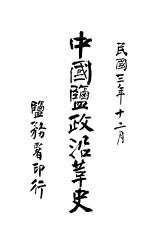 民國三年十二月
中國鹽政沿革史
鹽務署印行